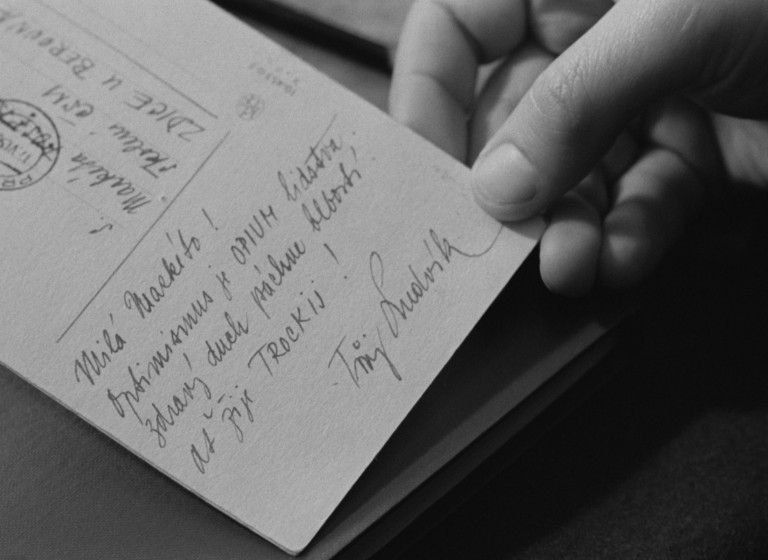 S. Markéta
školení ČSM
ZDICE U BEROUNA
Milá Markéto!
Optimismus je OPIUM lidstva.
zdravý duch páchne blbostí!
ať žije TROCKIJ!
Tvůj Ludvík